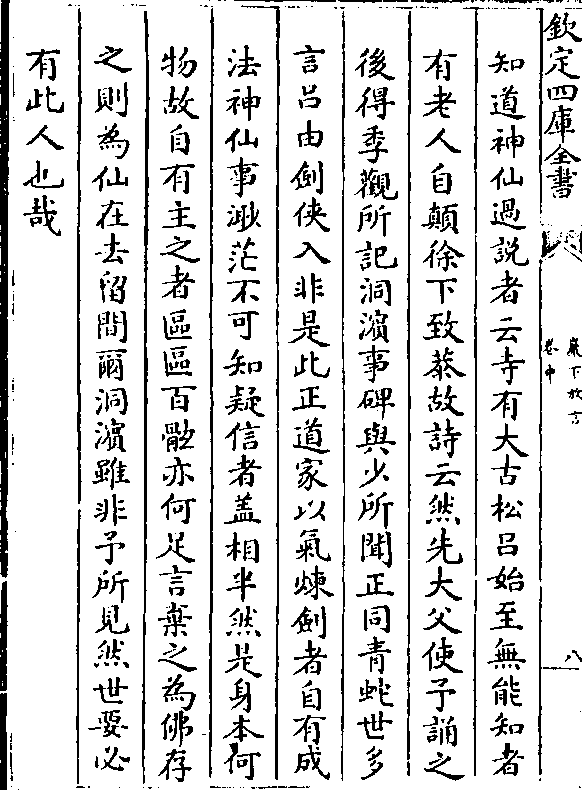 欽定四庫全書
巖下放言
卷中
八
知道神仙過說者云寺有大古松吕始至無能知者
有老人自顛徐下致恭故詩云然先大父使予誦之
後得季觀所記洞濵事碑與少所聞正同青蛇世多
言吕由劍俠入非是此正道家以氣煉劍者自有成
法神仙事渺茫不可知疑信者盖相半然是身本何
物故自有主之者區區百骸亦何足言棄之為佛存
之則為仙在去留間爾洞濵雖非予所見然世要必
有此人也哉